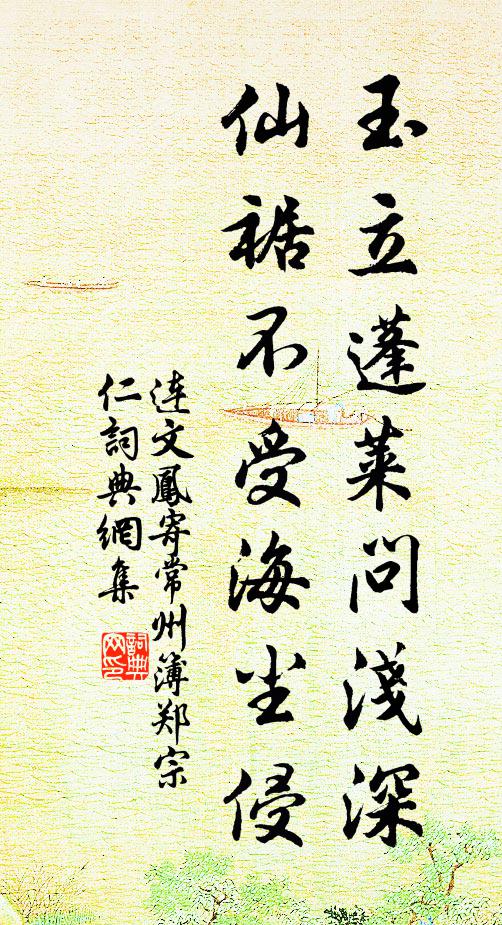 玉立蓬莱问浅深
仙裾不受海尘侵
连文鳳寄常州簿郑宗
仁詞典網集
詞典网印